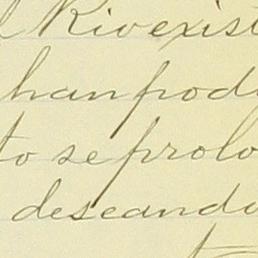 l Rio exist
han pod
to se prolo
deseando